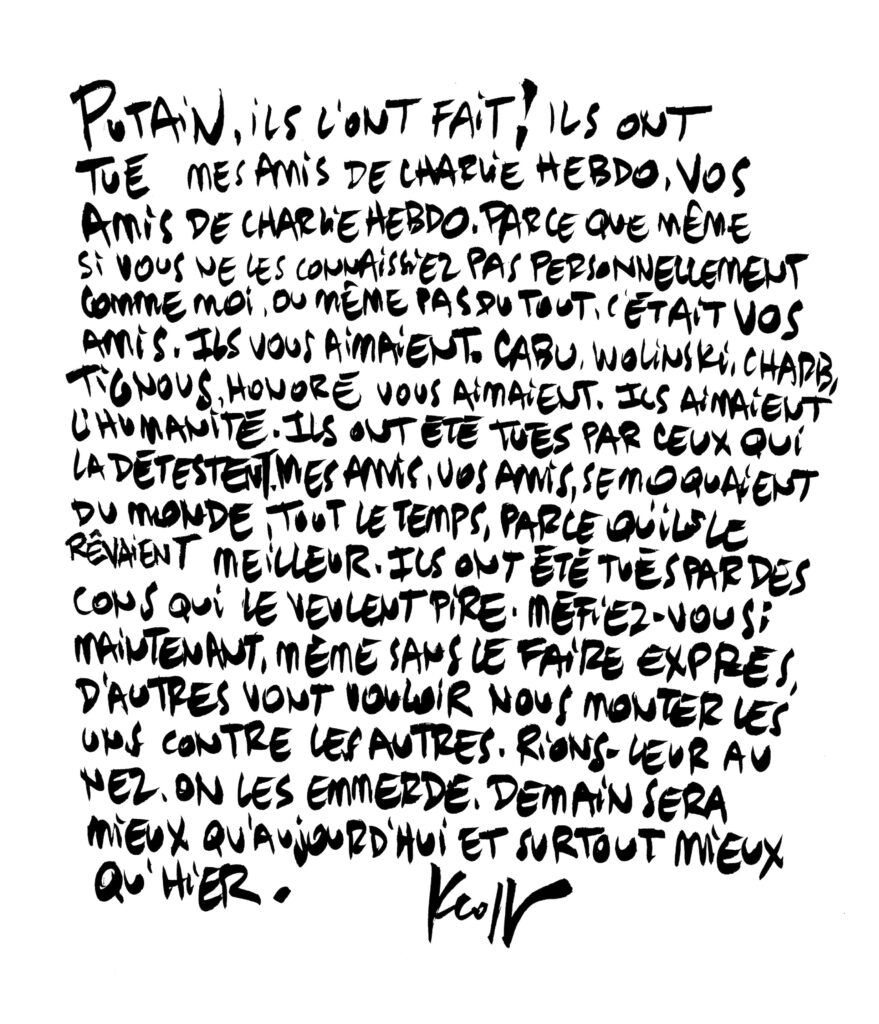 PUTAIN, ILS L'ONT FAIT! ILS ONT
TUÉ MES AMIS DE CHARLIE HEBDO, VOS
AMIS DE CHARLIE HEBDO. PARCE QUE MÊME
SI VOUS NE LES CONNAISSIEZ PAS PERSONNELLEMENT
COMME MOI, OU MÊME PAS DU TOUT, C'ÉTAIT VOS
AMIS. ILS VOUS AIMAIENT. CABU, WOLINSKI, CHARB,
TIGNOUS, HONORÉ VOUS AIMAIENT. ILS AIMAIENT
L'HUMANITÉ. ILS ONT ÉTÉ TUÉS PAR CEUX QUI
LA DÉTESTENT. MES AMIS, VOS AMIS, SE MOQUAIENT
DU MONDE, TOUT LE TEMPS, PARCE QU'ILS LE
RÊVAIENT MEILLEUR. ILS ONT ÉTÉ TUÉS PAR DES
CONS QUI LE VEULENT PIRE. MÉFIEZ-VOUS;
MAINTENANT, MÊME SANS LE FAIRE EXPRÈS,
D'AUTRES VONT VOULOIR NOUS MONTER LES
UNS CONTRE LES AUTRES. RIONS-LEUR AU
NEZ. ON LES EMMERDE. DEMAIN SERA
MIEUX QU'AUJOURD'HUI ET SURTOUT MIEUX
QU'HIER. Kroll